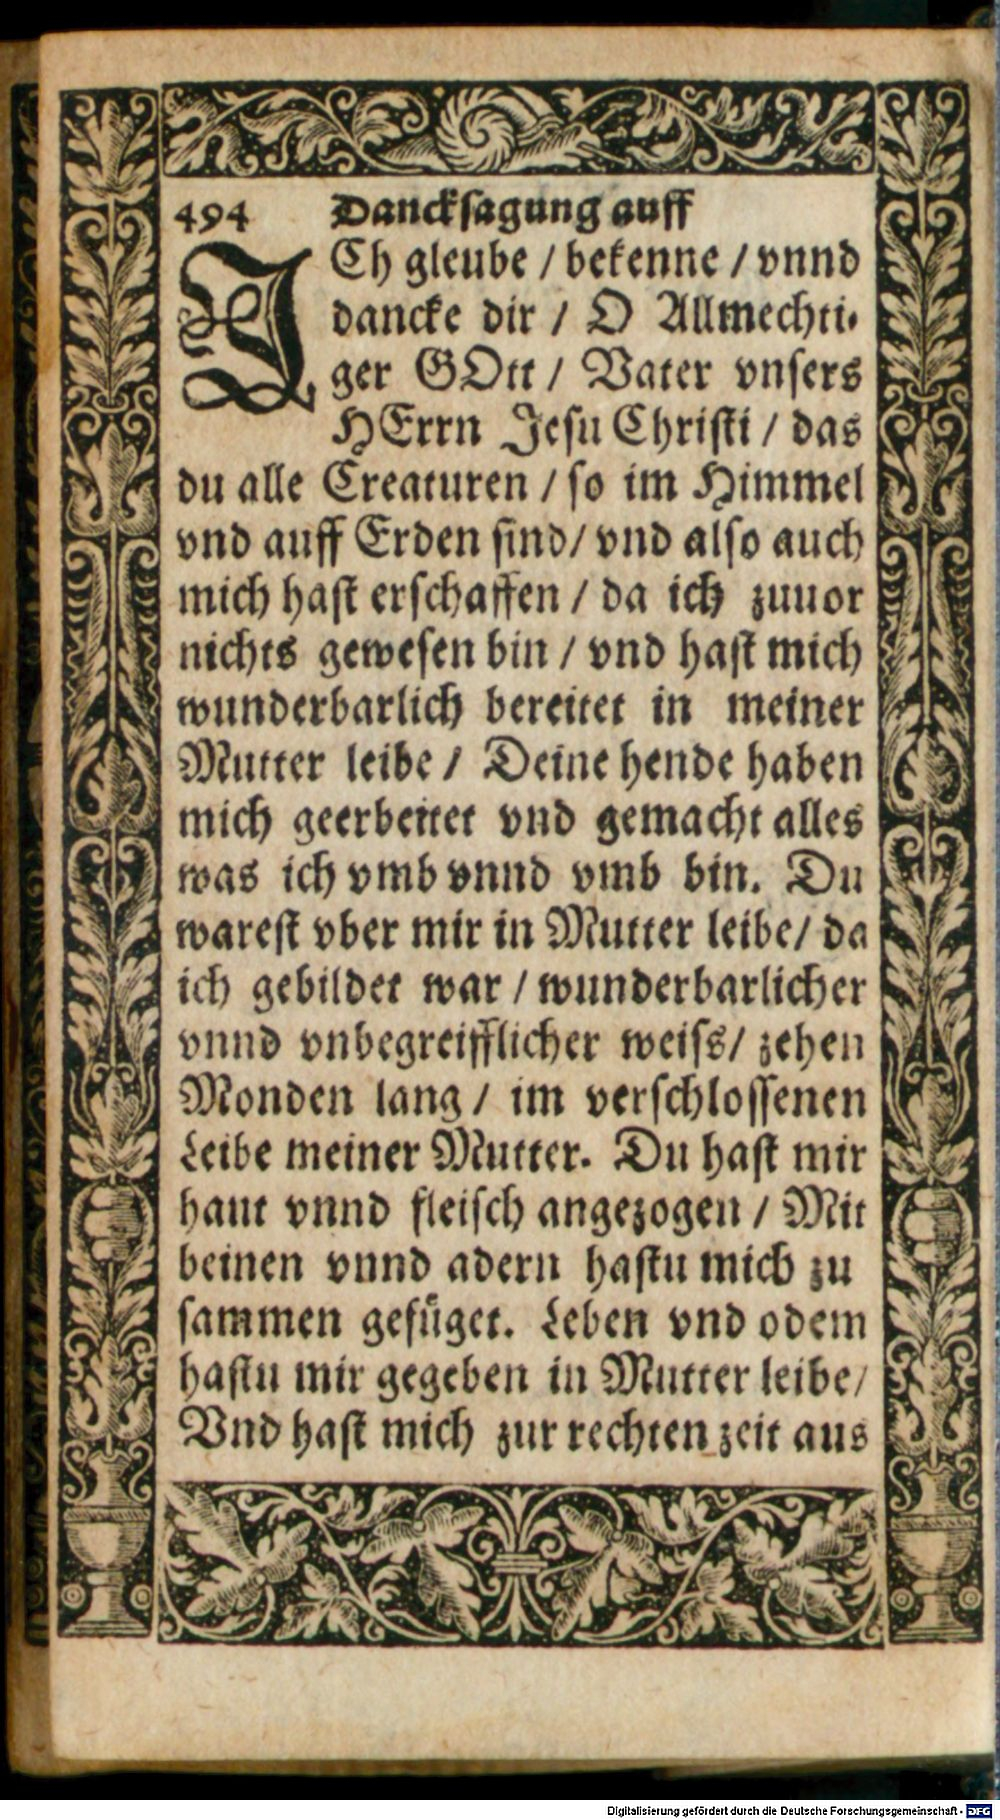 494 Dancksagung auff
ICh gleube / bekenne / vnnd
dancke dir / O Allmechti-
ger GOtt / Vater vnsers
HErrn Jesu Christi / das
du alle Creaturen / so im Himmel
vnd auff Erden sind/ vnd also auch
mich hast erschaffen / da ich zuuor
nichts gewesen bin / vnd hast mich
wunderbarlich bereitet in meiner
Mutter leibe / Deine hende haben
mich geerbeitet vnd gemacht alles
was ich vmb vnnd vmb bin. Du
warest vber mir in Mutter leibe/ da
ich gebildet war / wunderbarlicher
vnnd vnbegreifflicher weiss/ zehen
Monden lang / im verschlossenen
Leibe meiner Mutter. Du hast mir
haut vnnd fleisch angezogen / Mit
beinen vnnd adern hastu mich zu
sammen gefüget. Leben vnd odem
hastu mir gegeben in Mutter leibe/
Vnd hast mich zur rechten zeit aus
Digitalisierung gefördert durch die Deutsche Forschungsgemeinschaft - DFG